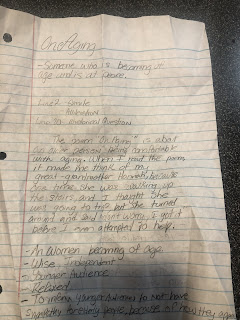 On Aging
- Someone who is becoming of
age and is at peace.
Line 2 Simile
Line 10 Rhetorical Question
The poem "On Aging" is about
a person being comfortable
with aging. When I read the poem
it made me think of my
great-grandmother because
one time she was walking up
the stairs, and I thought she
was going to trip but she turned
around and said I got it
before I even attempted to help.
- An Women becoming of age.
- Wise, Independent
- Younger Audience
- Relaxed
- To younger Audience to Not have
Sympathy for elderly people, because of how they aged